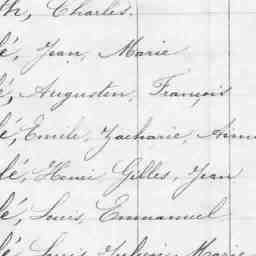 th, Charles.
lé, Jean, Marie
lé, Augustin, François
lé, Emile, Zacharie, Aimé
lé, Henri Gilles, Jean
lé, Louis, Emmanuel
lé, Louis, Julien, Marie